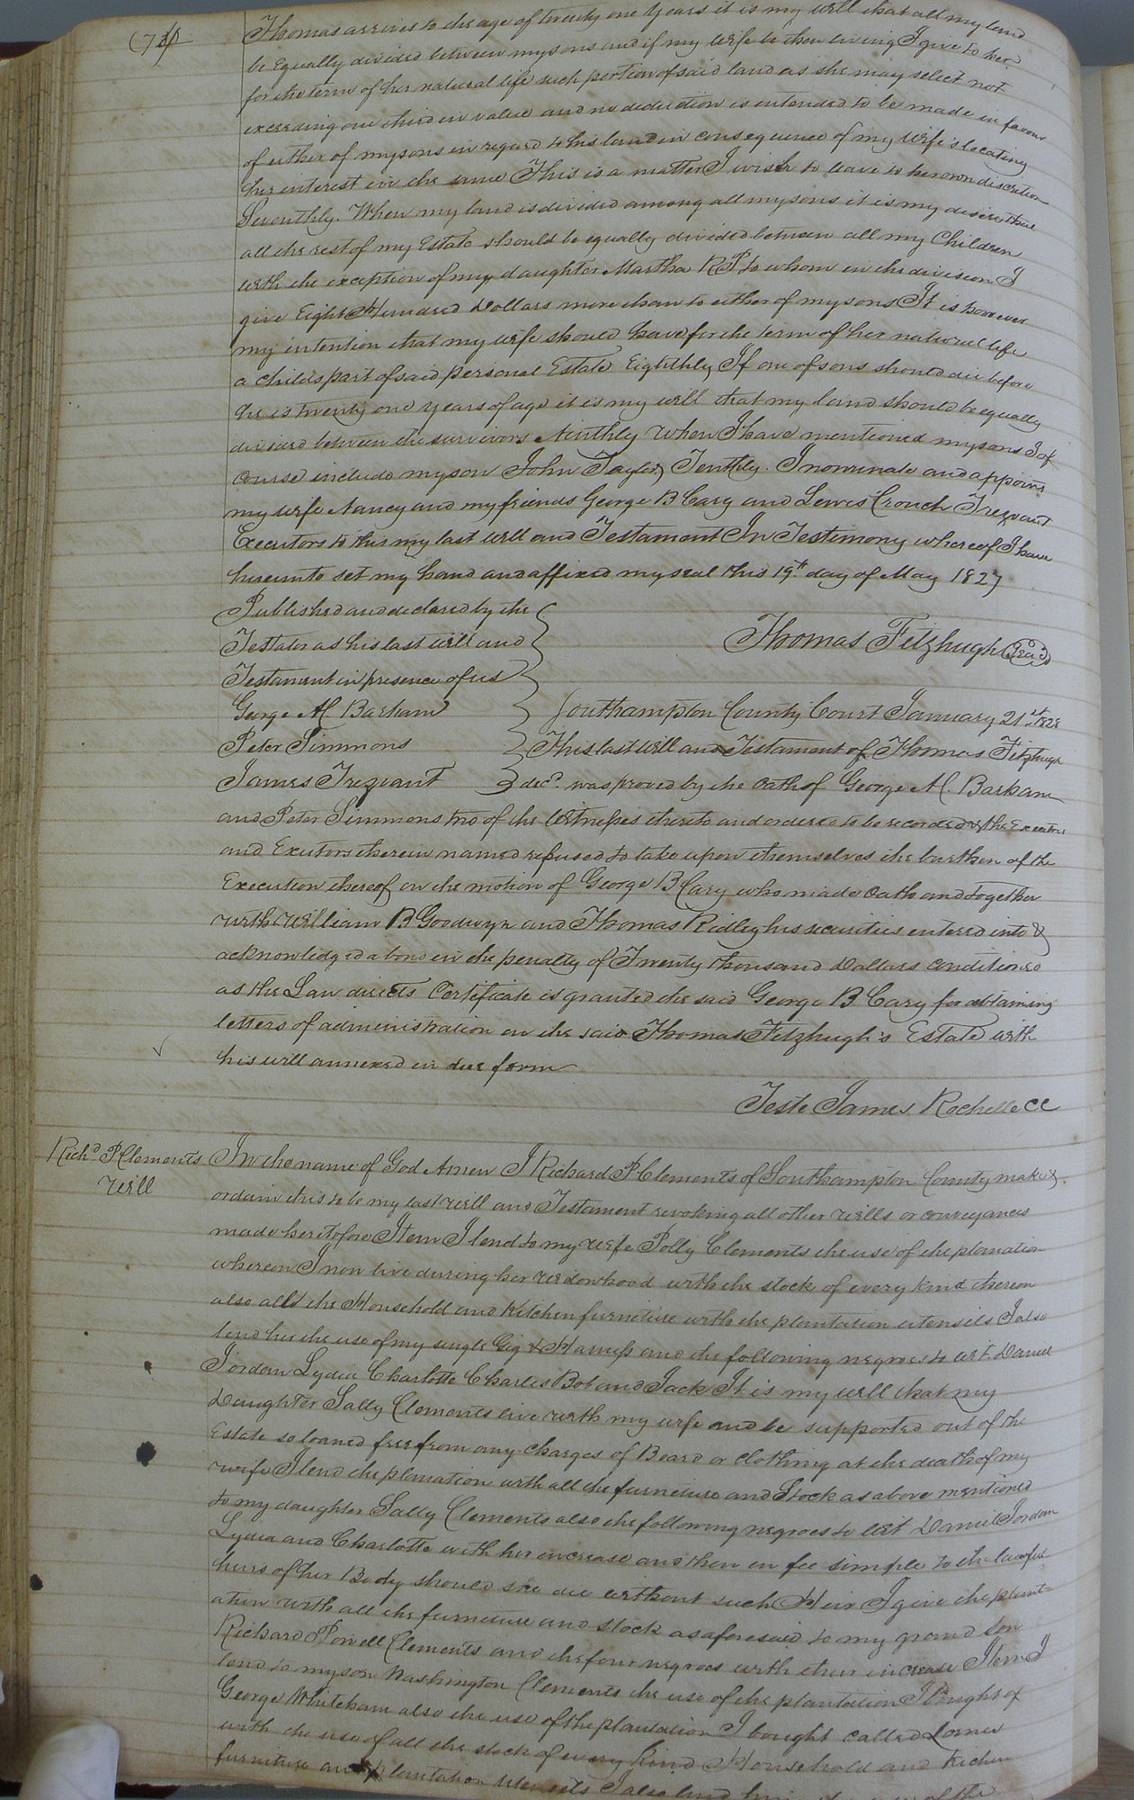 Thomas arrives to the age of twenty one years it is my will that all my land
be Equally divided between my sons and if my wife be then living I give to her
for the term of her natural life such portion of said land as she may select not
exceeding one third in value and no deduction is intended to be made in favour
of either of my sons in regard to his land in consequence of my wife's locating
her interest in the same This is a matter I wish to leave to her own discretion
Seventhly. When my land is divided among all my sons it is my desire that
all the rest of my Estate should be equally divided between all my Children
with the exception of my daughter Martha R P to whom in the division I
give Eight Hundred Dollars more than to either of my sons It is however
my intention that my wife should have for the term of her natural life
a childs part of said personal Estate Eighthly If one of sons should die before
he is twenty one years of age it is my will that my land should be equally
divided between the survivors Ninthly When I have mentioned my sons I of
course include my son John Tayloe Tenthly. I nominate and appoint
my wife Nancy and my friends George B Cary and Lewis Crouch Trezvant
Executors to this my last will and Testament In Testimony whereof I have
hereunto set my hand and affixed my seal this 19th day of May 1827
Published and declared by the
Testator as his last will and
Thomas Fitzhugh Seal
Testament in presence of us
George M. Barham
Southampton County Court January 21st 1828
Peter Simmons
This last will and Testament of Thomas Fitzhugh
James Trezvant
decd. was proved by the Oath of George M. Barham
and Peter Simmons two of the Witnesses thereto and ordered to be recorded & the Executrix
and Exutors therein named refused to take upon themselves the burthen of the
Execution thereof on the motion of George B Cary who made Oath and together
with William B Goodwyn and Thomas Ridley his securities entered into &
acknowledged a bond in the penalty of Twenty thousand Dollars conditioned
as the Law directs Certificate is granted the said George B Cary for obtaining
letters of administration on the said Thomas Fitzhugh's Estate with
his will annexed in due form
Teste James Rochelle CC
Richd P Clements
Will
In the name of God Amen I Richard P Clements of Southampton County make &
ordain this to be my last Will and Testament revoking all other wills or conveyances
made heretofore Item I lend to my wife Polly Clements the use of the plantation
whereon I now live during her widowhood with the stock of every kind thereon
also all the Household and Kitchen furniture with the plantation utensils I also
lend her the use of my single Gig & Harness and the following negroes to wit. Daniel
Jordan Lydia Charlotte Charles Bob and Jack It is my will that my
Daughter Sally Clements live with my wife and be supported out of the
Estate so loaned free from any Charges of Board or clothing at the death of my
wife I lend the plantation with all the furniture and Stock as above mentioned
to my daughter Sally Clements also the following negroes to wit Daniel Jordan
Lydia and Charlotte with her increase and then in fee simple to the lawful
heirs of her Body should she die without such Heir I give the plant
ation with all the furniture and stock as aforesaid to my grand son
Richard Powell Clements and the four negroes with their increase Item I
lend to my son Washington Clements the use of the plantation I bought of
George Whitehead also the use of the plantation I bought called
with the use of all the stock of every kind Household and Kitchen
furniture and plantation utensils I also lend him of the